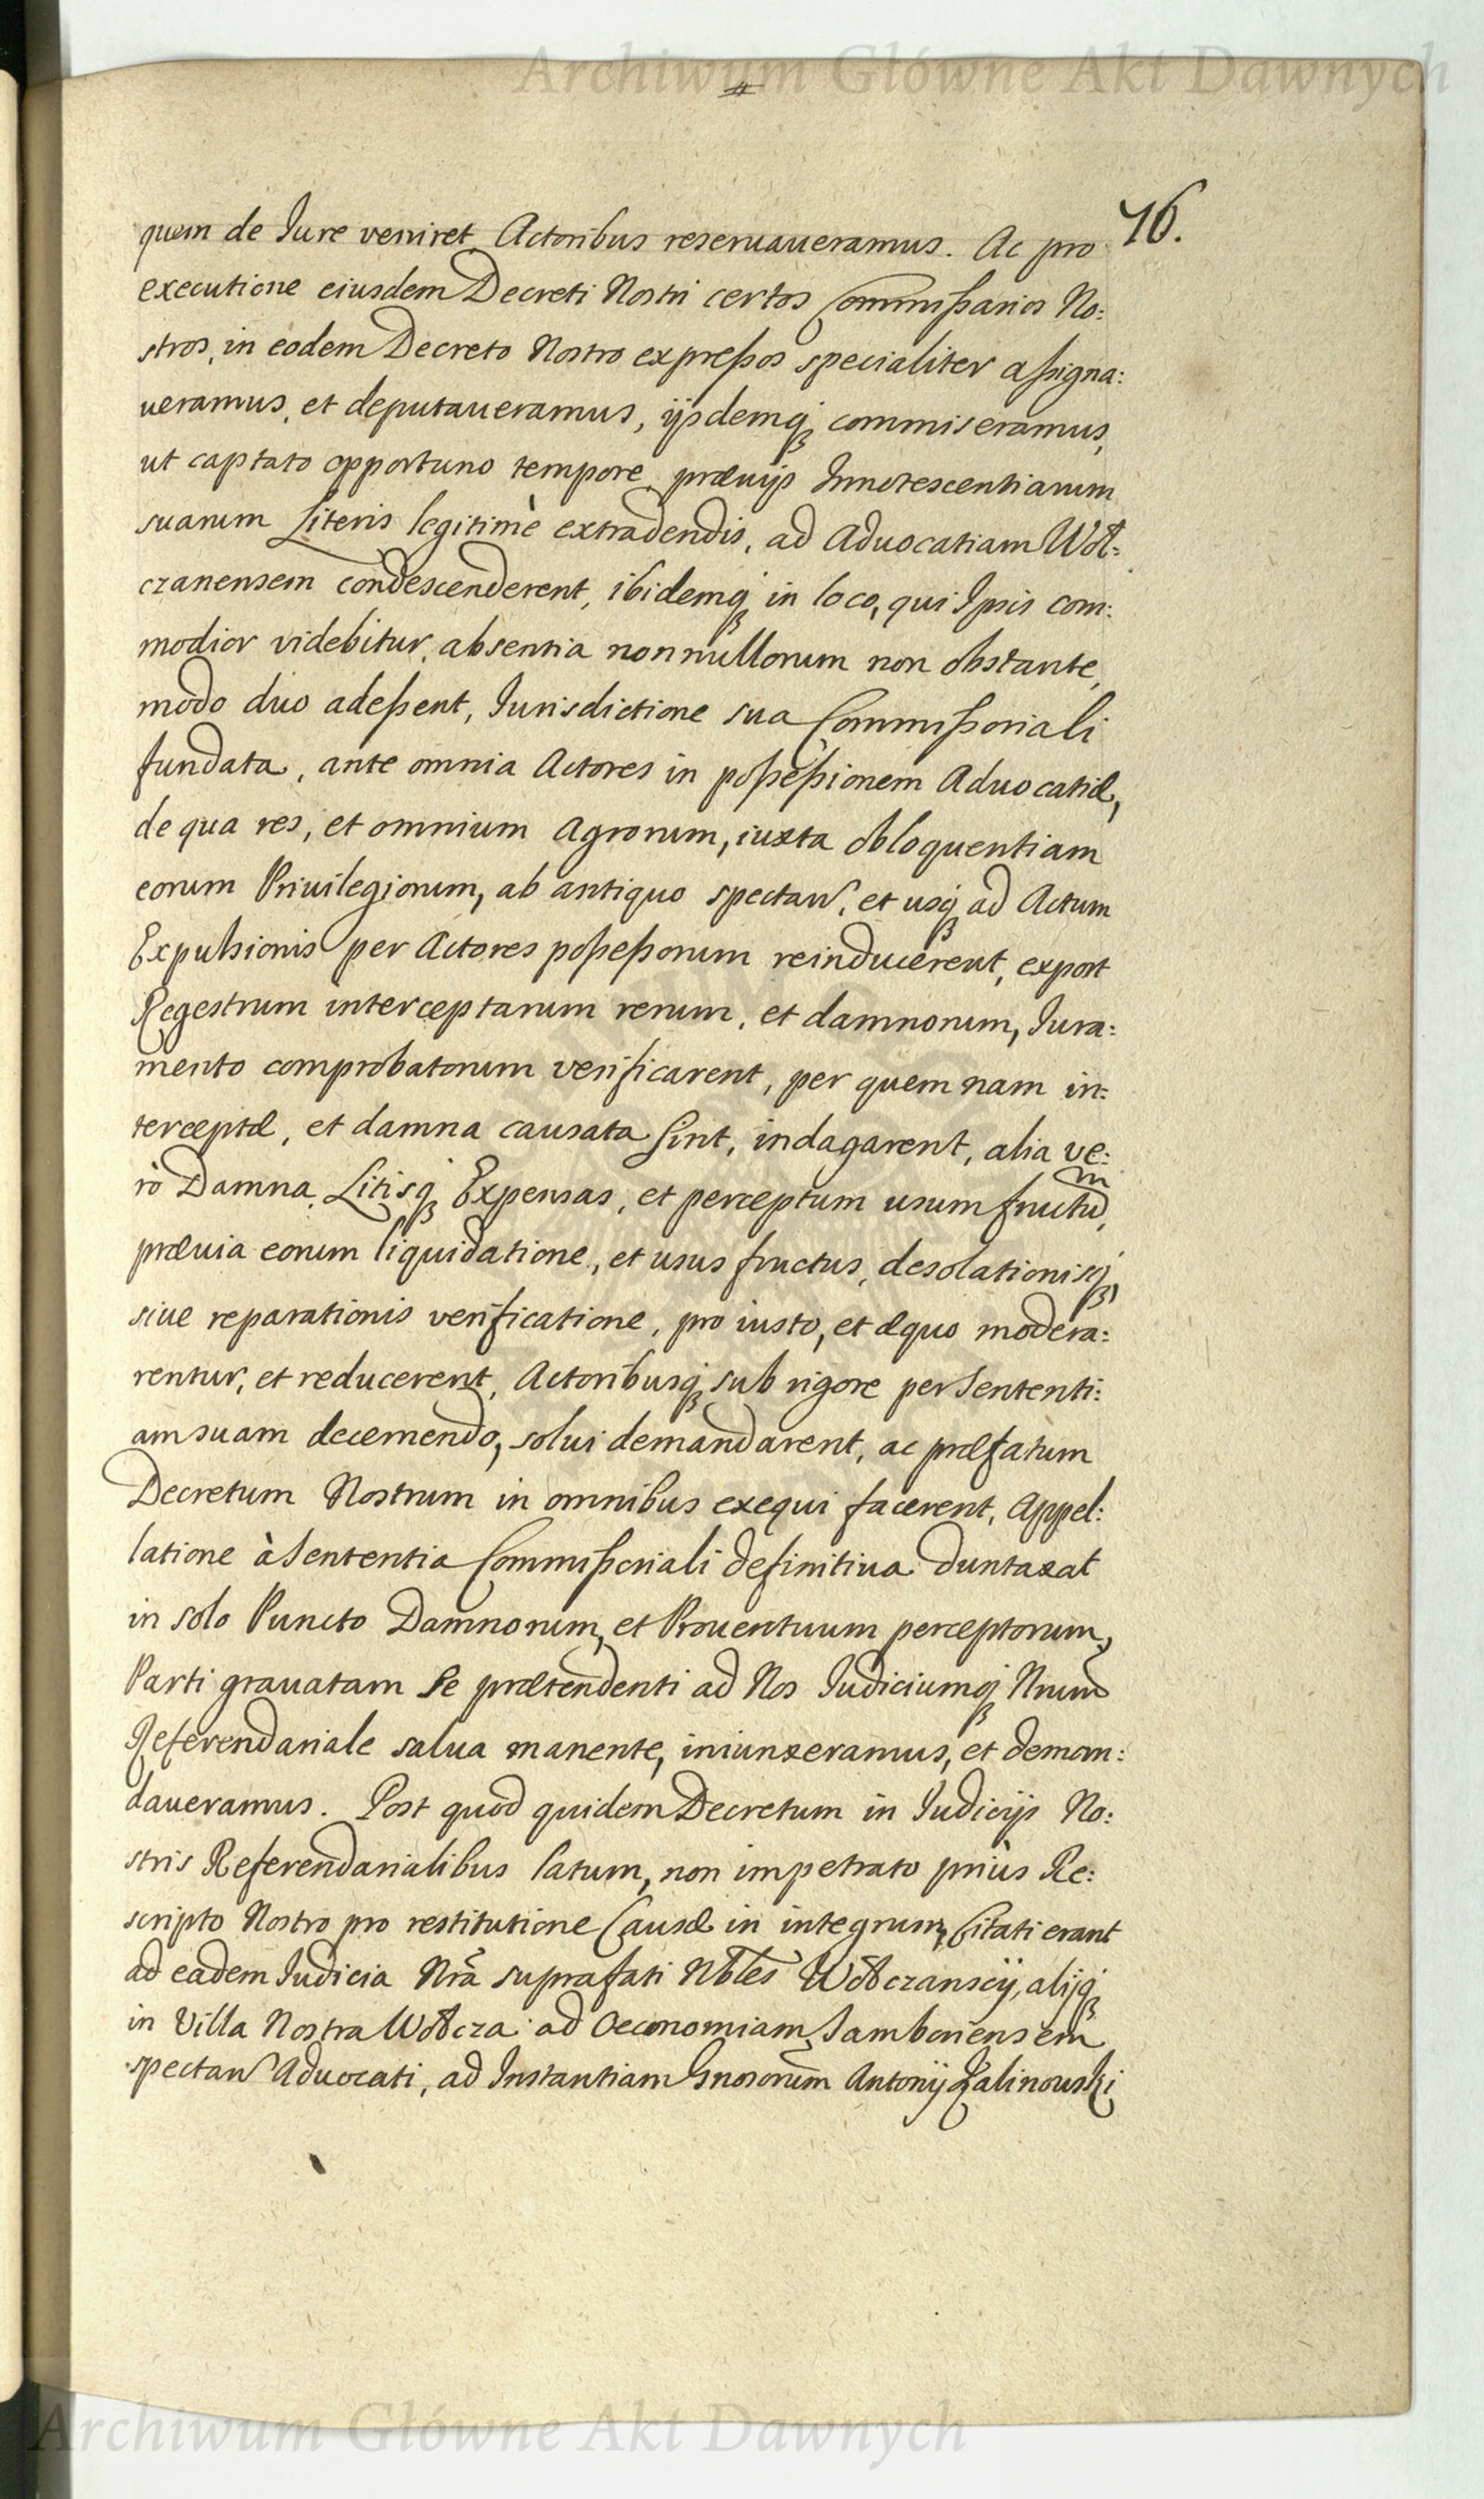 Archiwum Główne Akt Dawnych
#
76.
quem de Jure veniret Actoribus reseruaueramus. Ac pro
executione eiusdem Decreti Nostri certos Commißarios No:
stros, in eodem Decreto Nostro expreßos specialiter aßigna:
ueramus, et deputaueramus, ijsdemq́ commiseramus,
ut captato opportuno tempore, præuijs Innotescentiarum
suarum Literis legitimè extradendis, ad Aduocatiam Woł:
czanensem condescenderent, ibidemq́ in loco, qui Ipsis com:
modior videbitur, absentia nonnullorum non obstante,
modo duo adeßent, Jurisdictione sua Commißoriali
fundata, ante omnia Actores in poßeßionem Aduocatiæ,
de qua res, et omnium Agrorum, iuxta obloquentiam
eorum Priuilegiorum, ab antiquo spectan, et usq́ ad Actum
Expulsionis per Actores poßeßorum reinducerent, expost
Regestrum interceptarum rerum, et damnorum, Jura:
mento comprobatorum verificarent, per quem nam in:
terceptæ, et damna causata sint, indagarent, alia ve:
rò Damna, Litisq́ Expensas, et perceptum usumfructũ,
præuia eorum liquidatione, et usus fructus, desolationisq́,
siue reparationis verificatione, pro iusto, et æquo modera:
rentur, et reducerent, Actoribusq́ sub rigore per Sententi:
am suam decernendo, solui demandarent, ac præfatum
Decretum Nostrum in omnibus exequi facerent, Appel:
latione à Sententia Commißoriali definitiua duntaxat
in solo Puncto Damnorum, et Prouentuum perceptorum,
Parti grauatam se prætendenti ad Nos Judiciumq́ Nrum
Referendariale salua manente, iniunxeramus, et deman:
daueramus. Post quod quidem Decretum in Judicijs No:
stris Referendarialibus latum, non impetrato priùs Re:
scripto Nostro pro restitutione Causæ in integrum, Citati erant
ad eadem Judicia Nrã suprafati Nbles Wołczanscy, alijq́
in Villa Nostra Wołcza ad Oeconomiam Samboriensem
spectan Aduocati, ad Instantiam Gnosorum Antonij Kalinowski
Archiwum Główne Akt Dawnych